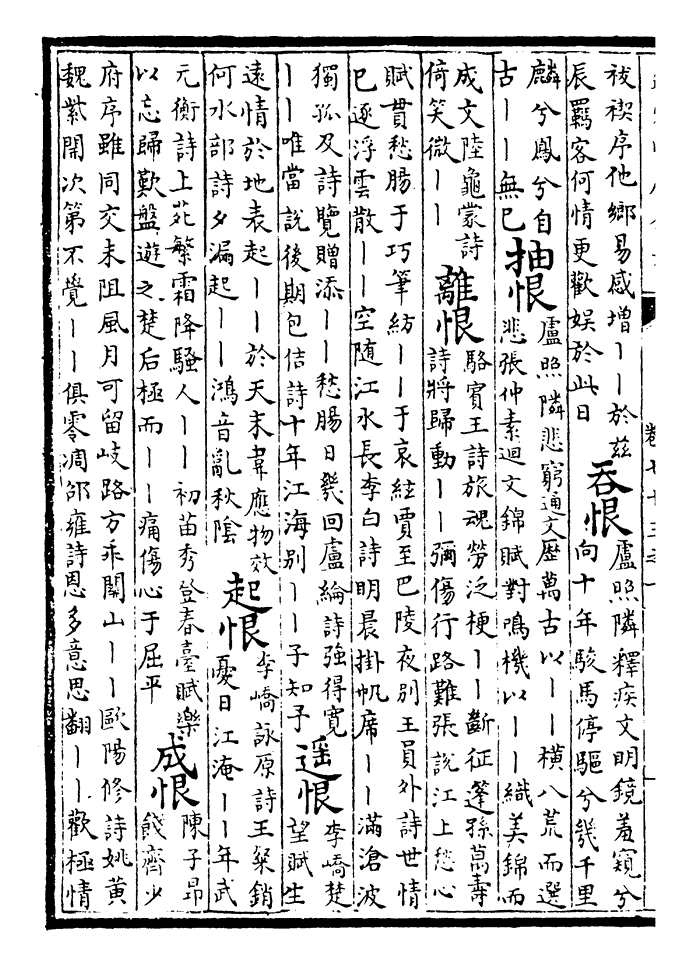 祓禊序他鄉易感增丨丨於茲
辰羈客何情更歡娛於此日
吞恨
盧照隣釋疾文明鏡羞窺兮
向十年駿馬停驅兮幾千里
麟兮鳳兮自
古丨丨無已
抽恨
盧照隣悲窮通文歷萬古以丨丨橫八荒而選
悲張仲素迴文錦賦對鳴機以丨丨織美錦而
成文陸龜蒙詩
倚笑微丨丨
離恨
駱賓王詩旅魂勞泛梗丨丨斷征蓬孫萬壽
詩將歸動丨丨彌傷行路難張說江上愁心
賦貫愁腸于巧筆紡丨丨于哀絃賈至巴陵夜別王員外詩世情
已逐浮雲散丨丨空隨江水長李白詩明晨掛帆席丨丨滿滄波
獨孤及詩覽贈添丨丨愁腸日幾回盧綸詩強得寬
丨丨唯當說後期包佶詩十年江海別丨丨子知予
遥恨
李嶠楚
望賦生
遠情於地表起丨丨於天末韋應物效
何水部詩夕漏起丨丨鴻音亂秋陰
起恨
李嶠詠原詩王粲銷
憂日江淹丨丨年武
元衡詩上苑繁霜降騷人丨丨初苗秀登春臺賦樂
以忘歸歎盤遊之楚后極而丨丨痛傷心于屈平
成恨
陳子昂
餞齊少
府序雖同交未阻風月可留岐路方乖關山丨丨歐陽修詩姚黃
魏紫開次第不覺丨丨俱零凋邵雍詩恩多意思翻丨丨歡極情